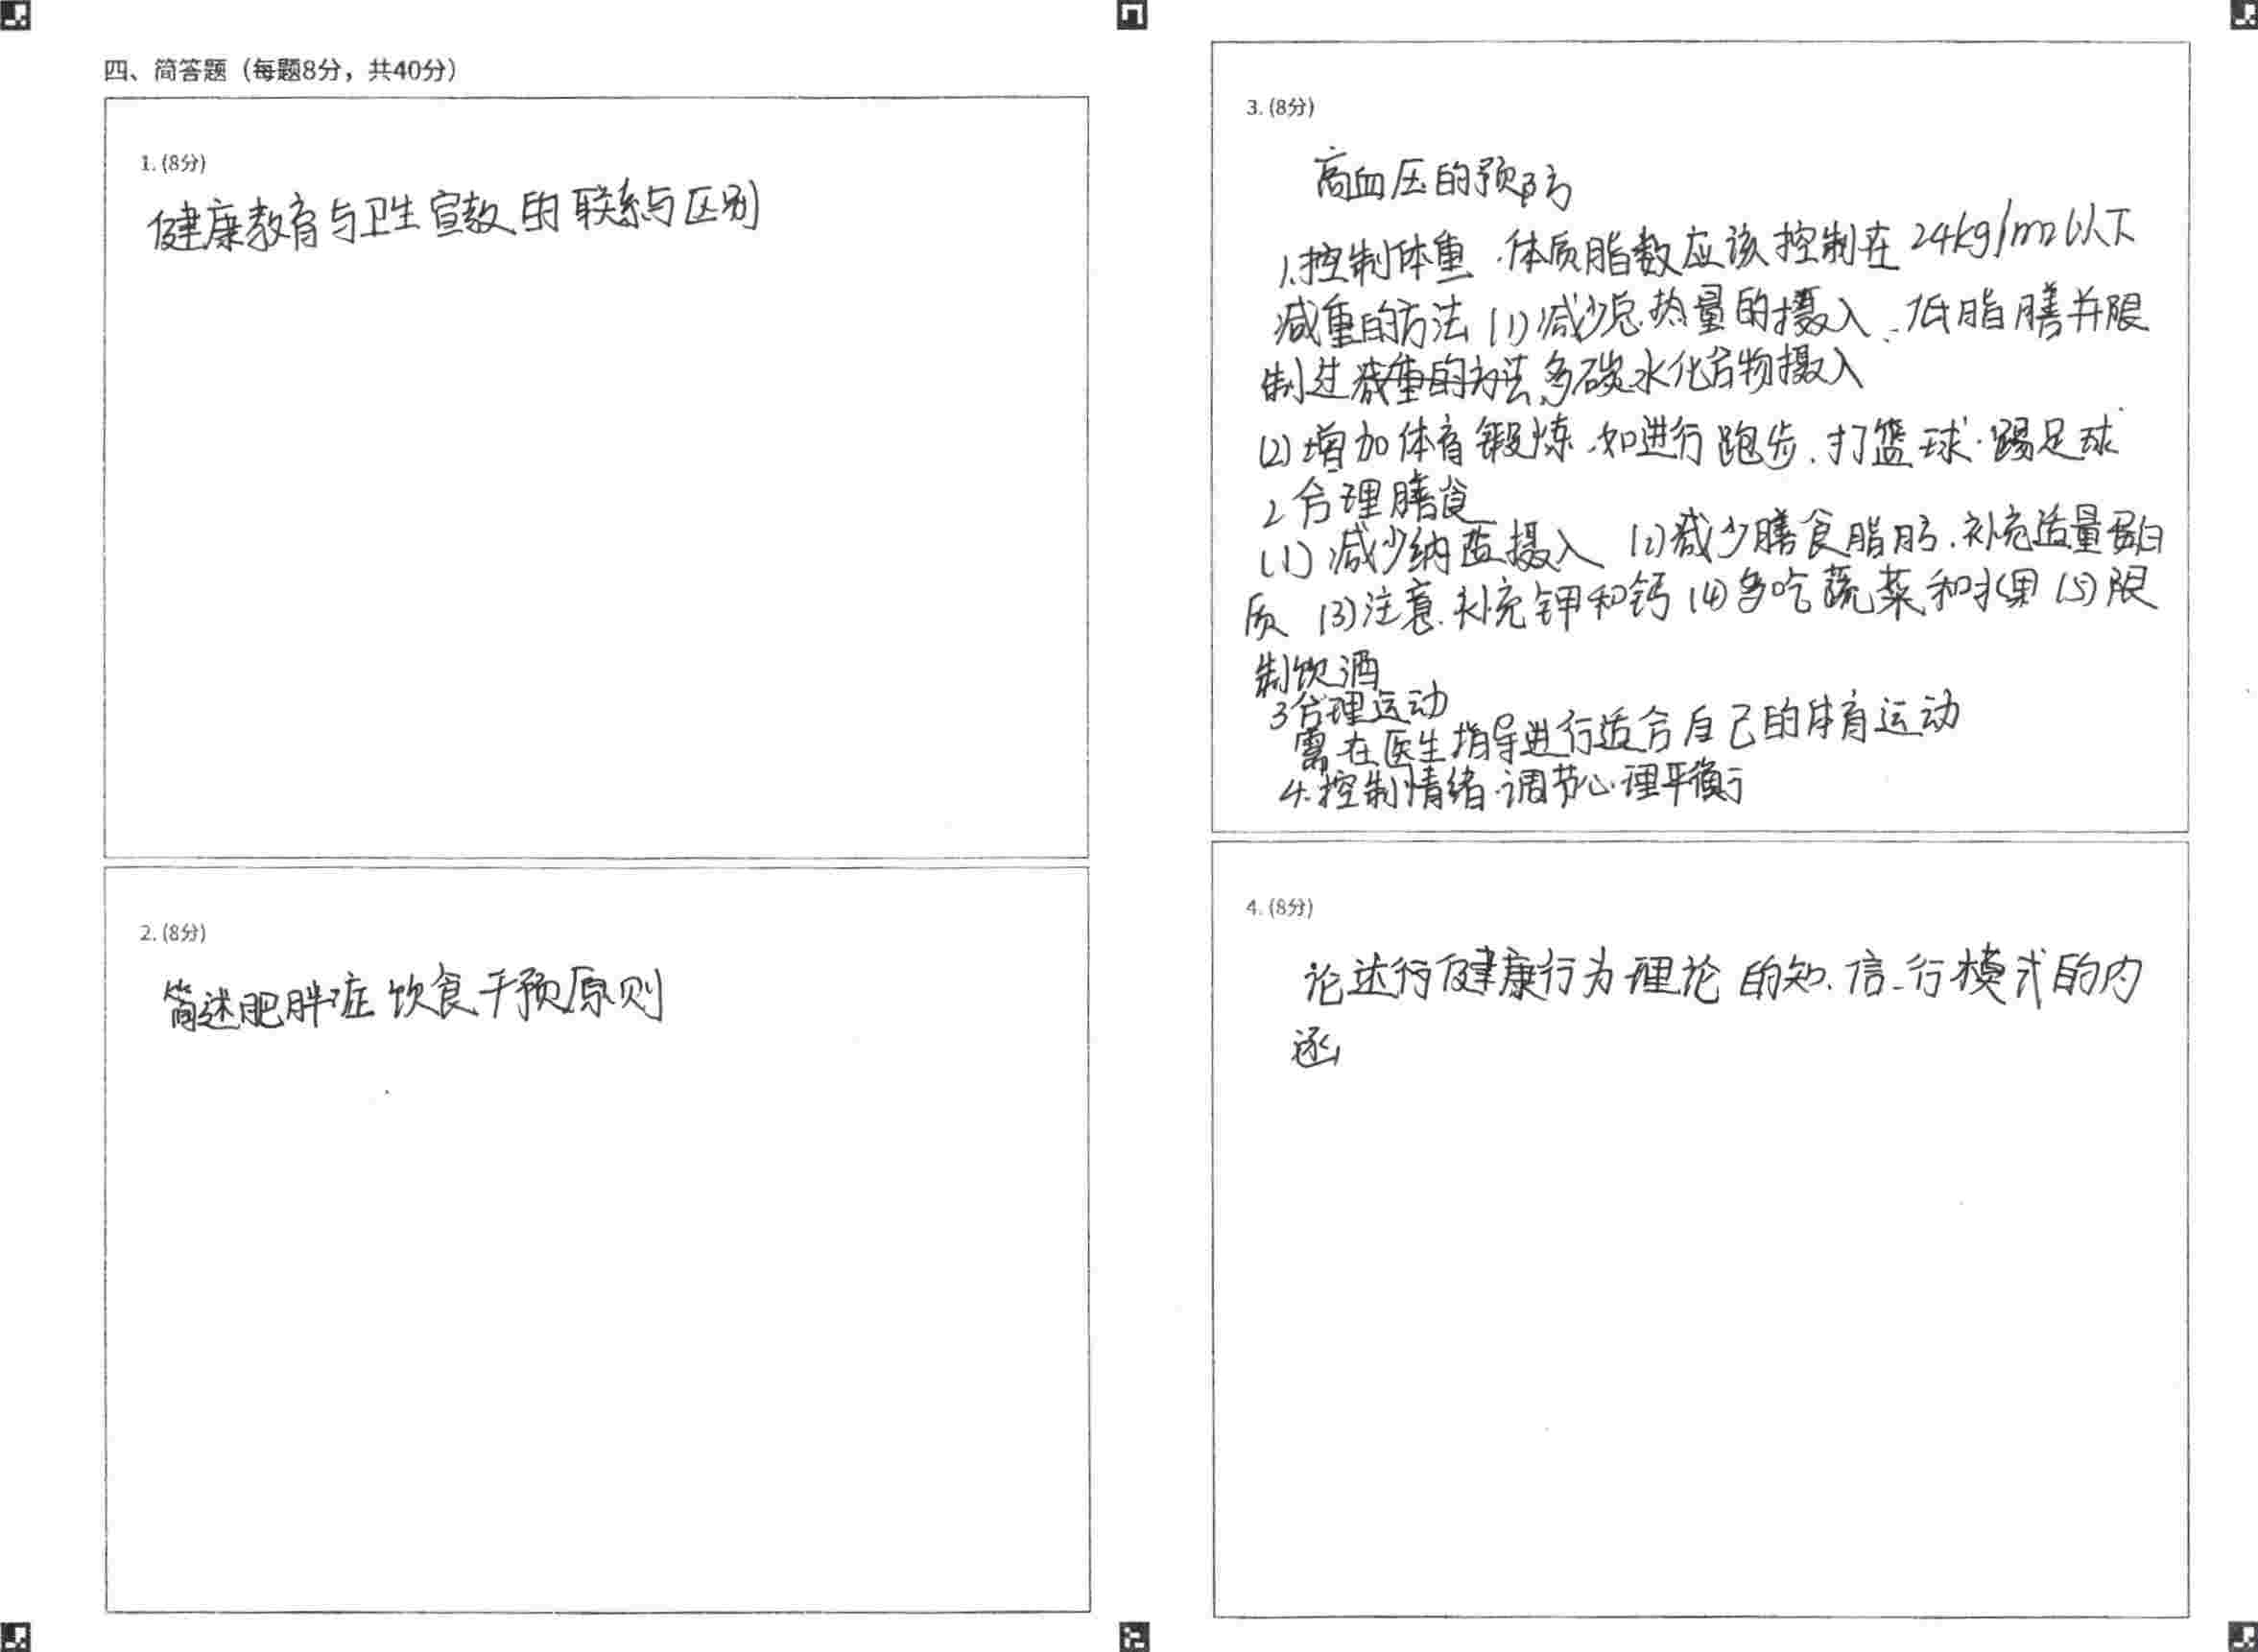 四、简答题（每题8分，共40分）
1. (8分)
健康教育与卫生宣教的联系与区别
2. (8分)
简述肥胖症饮食干预原则
3. (8分)
高血压的预防
1.控制体重.体质脂数应该控制在24kg/m2以下
减重的方法(1)减少总热量的摄入、低脂膳并限
制过减重的方法多碳水化合物摄入
(2)增加体育锻炼.如进行跑步.打篮球.踢足球
2合理膳食
(1)减少纳盐摄入 (2)减少膳食脂肪.补充适量蛋白
质 (3)注意补充钾和钙 (4)多吃蔬菜和水果 (5)限
制饮酒
3合理运动
需在医生指导进行适合自己的体育运动
4.控制情绪.调节心理平衡
4. (8分)
论述行健康行为理论的知.信.行模式的内
涵